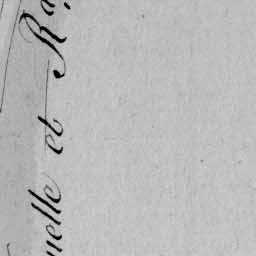 uelle et Ra